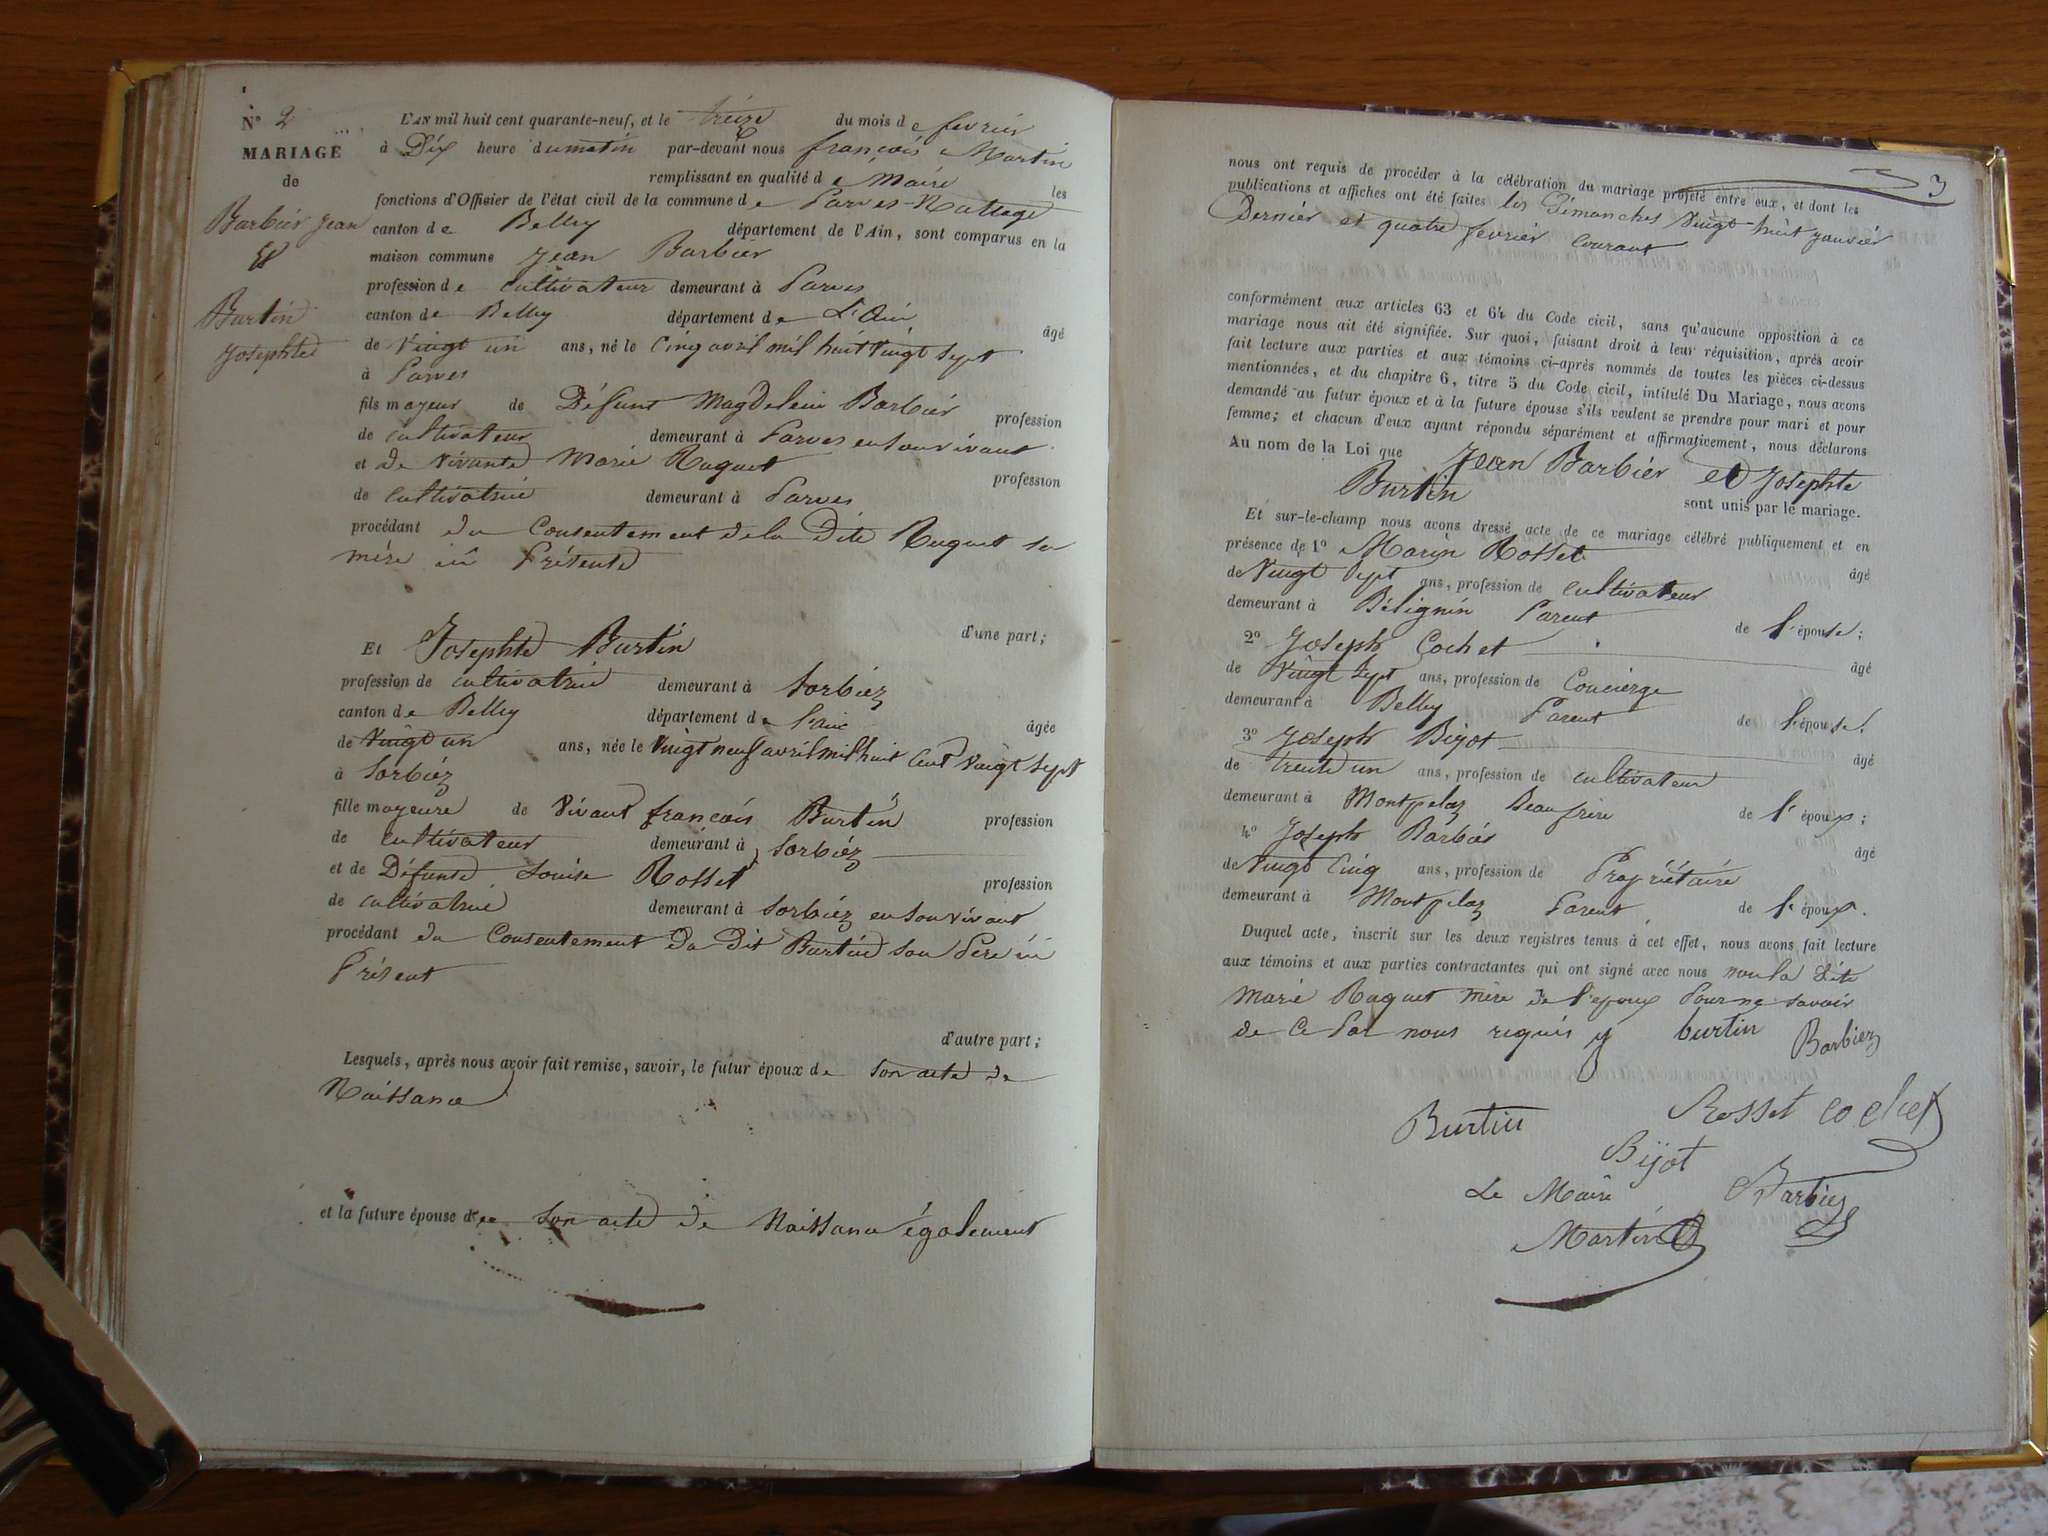 N° 2
MARIAGE
de
Barbier Jean
Et
Burtin
Josephte
L'AN mil huit cent quarante-neuf, et le treize du mois de fevrier
à Dix heure du matin par-devant nous françois Martin
remplissant en qualité de Maire les
fonctions d'Offisier de l'état civil de la commune de Parves-Nattage
canton de Belley département de l'Ain, sont comparus en la
maison commune Jean Barbier
profession de cultivateur demeurant à Parves
canton de Belley département de L'Ain âgé
de Vingt un ans, né le Cinq avril mil huit Vingt Sept
à Parves
fils mayeur de Défunt Magdelein Barbier profession
de cultivateur demeurant à Parves en son vivant
et de vivante Marie Raguet profession
de cultivatrice demeurant à Parves
procédant du Consentement de la Dite Raguet sa
mère ici Présente
d'une part;
Et Josephte Burtin
profession de cultivatrice demeurant à Sorbiéz
canton de Belley département de l'ain âgée
de Vingt un ans, née le Vingt neuf avril mil huit Cent Vingt Sept
à Sorbiéz
fille mayeure de Vivant françois Burtin profession
de cultivateur demeurant à Sorbiéz
et de Défunte Louise Rosset profession
de cultivatrice demeurant à Sorbiéz en son vivant
procédant du Consentement du dit Burtin son Père ici
Présent
d'autre part;
Lesquels, après nous avoir fait remise, savoir, le futur époux de Son acte de
Naissance
et la future épouse de Son acte de Naissance également
3
nous ont requis de procéder à la célébration du mariage projeté entre eux, et dont les
publications et affiches ont été faites les Dimanches Vingt-huit janvier
Dernier et quatre fevrier Courant
conformément aux articles 63 et 64 du Code civil, sans qu'aucune opposition à ce
mariage nous ait été signifiée. Sur quoi, faisant droit à leur réquisition, après avoir
fait lecture aux parties et aux témoins ci-après nommés de toutes les pièces ci-dessus
mentionnées, et du chapitre 6, titre 5 du Code cicil, intitulé Du Mariage, nous avons
demandé au futur époux et à la future épouse s'ils veulent se prendre pour mari et pour
femme; et chacun d'eux ayant répondu séparément et affirmativement, nous déclarons
Au nom de la Loi que Jean Barbier et Josephte
Burtin sont unis par le mariage.
Et sur-le-champ nous avons dressé acte de ce mariage célébré publiquement et en
présence de 1° Marin Rosset âgé
de Vingt Sept ans, profession de cultivateur
demeurant à Bélignin Parent de l'épouse;
2° Joseph Cochet âgé
de Vingt Sept ans, profession de Concierge
demeurant à Belley Parent de l'épouse.
3° Joseph Bijot âgé
de trente un ans, profession de cultivateur
demeurant à Montpelaz Beau frère de l'époux;
4° Joseph Barbier âgé
de Vingt Cinq ans, profession de Propriétaire
demeurant à Montpelaz Parent de l'époux.
Duquel acte, inscrit sur les deux registres tenus à cet effet, nous avons fait lecture
aux témoins et aux parties contractantes qui ont signé avec nous non la dite
Marie Raguet mère de l'époux Pour ne savoir
de Ce Par nous requis burtin Barbier
Burtin Rosset cochet
Bijot
Le Maire Barbier
Martin